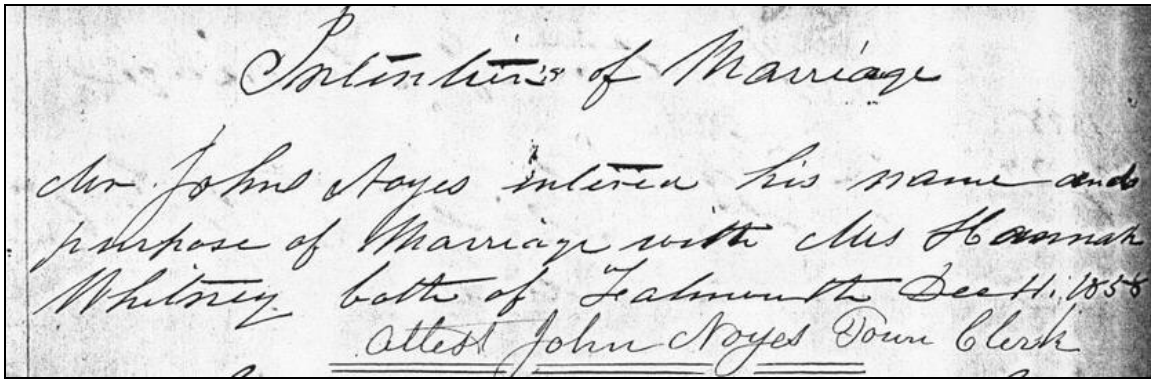 Intentions of Marriage
Mr John Noyes entered his name and
purpose of Marriage with Mrs Hannah
Whitney both of Falmouth Dec 1858
Attest John Noyes Town Clerk